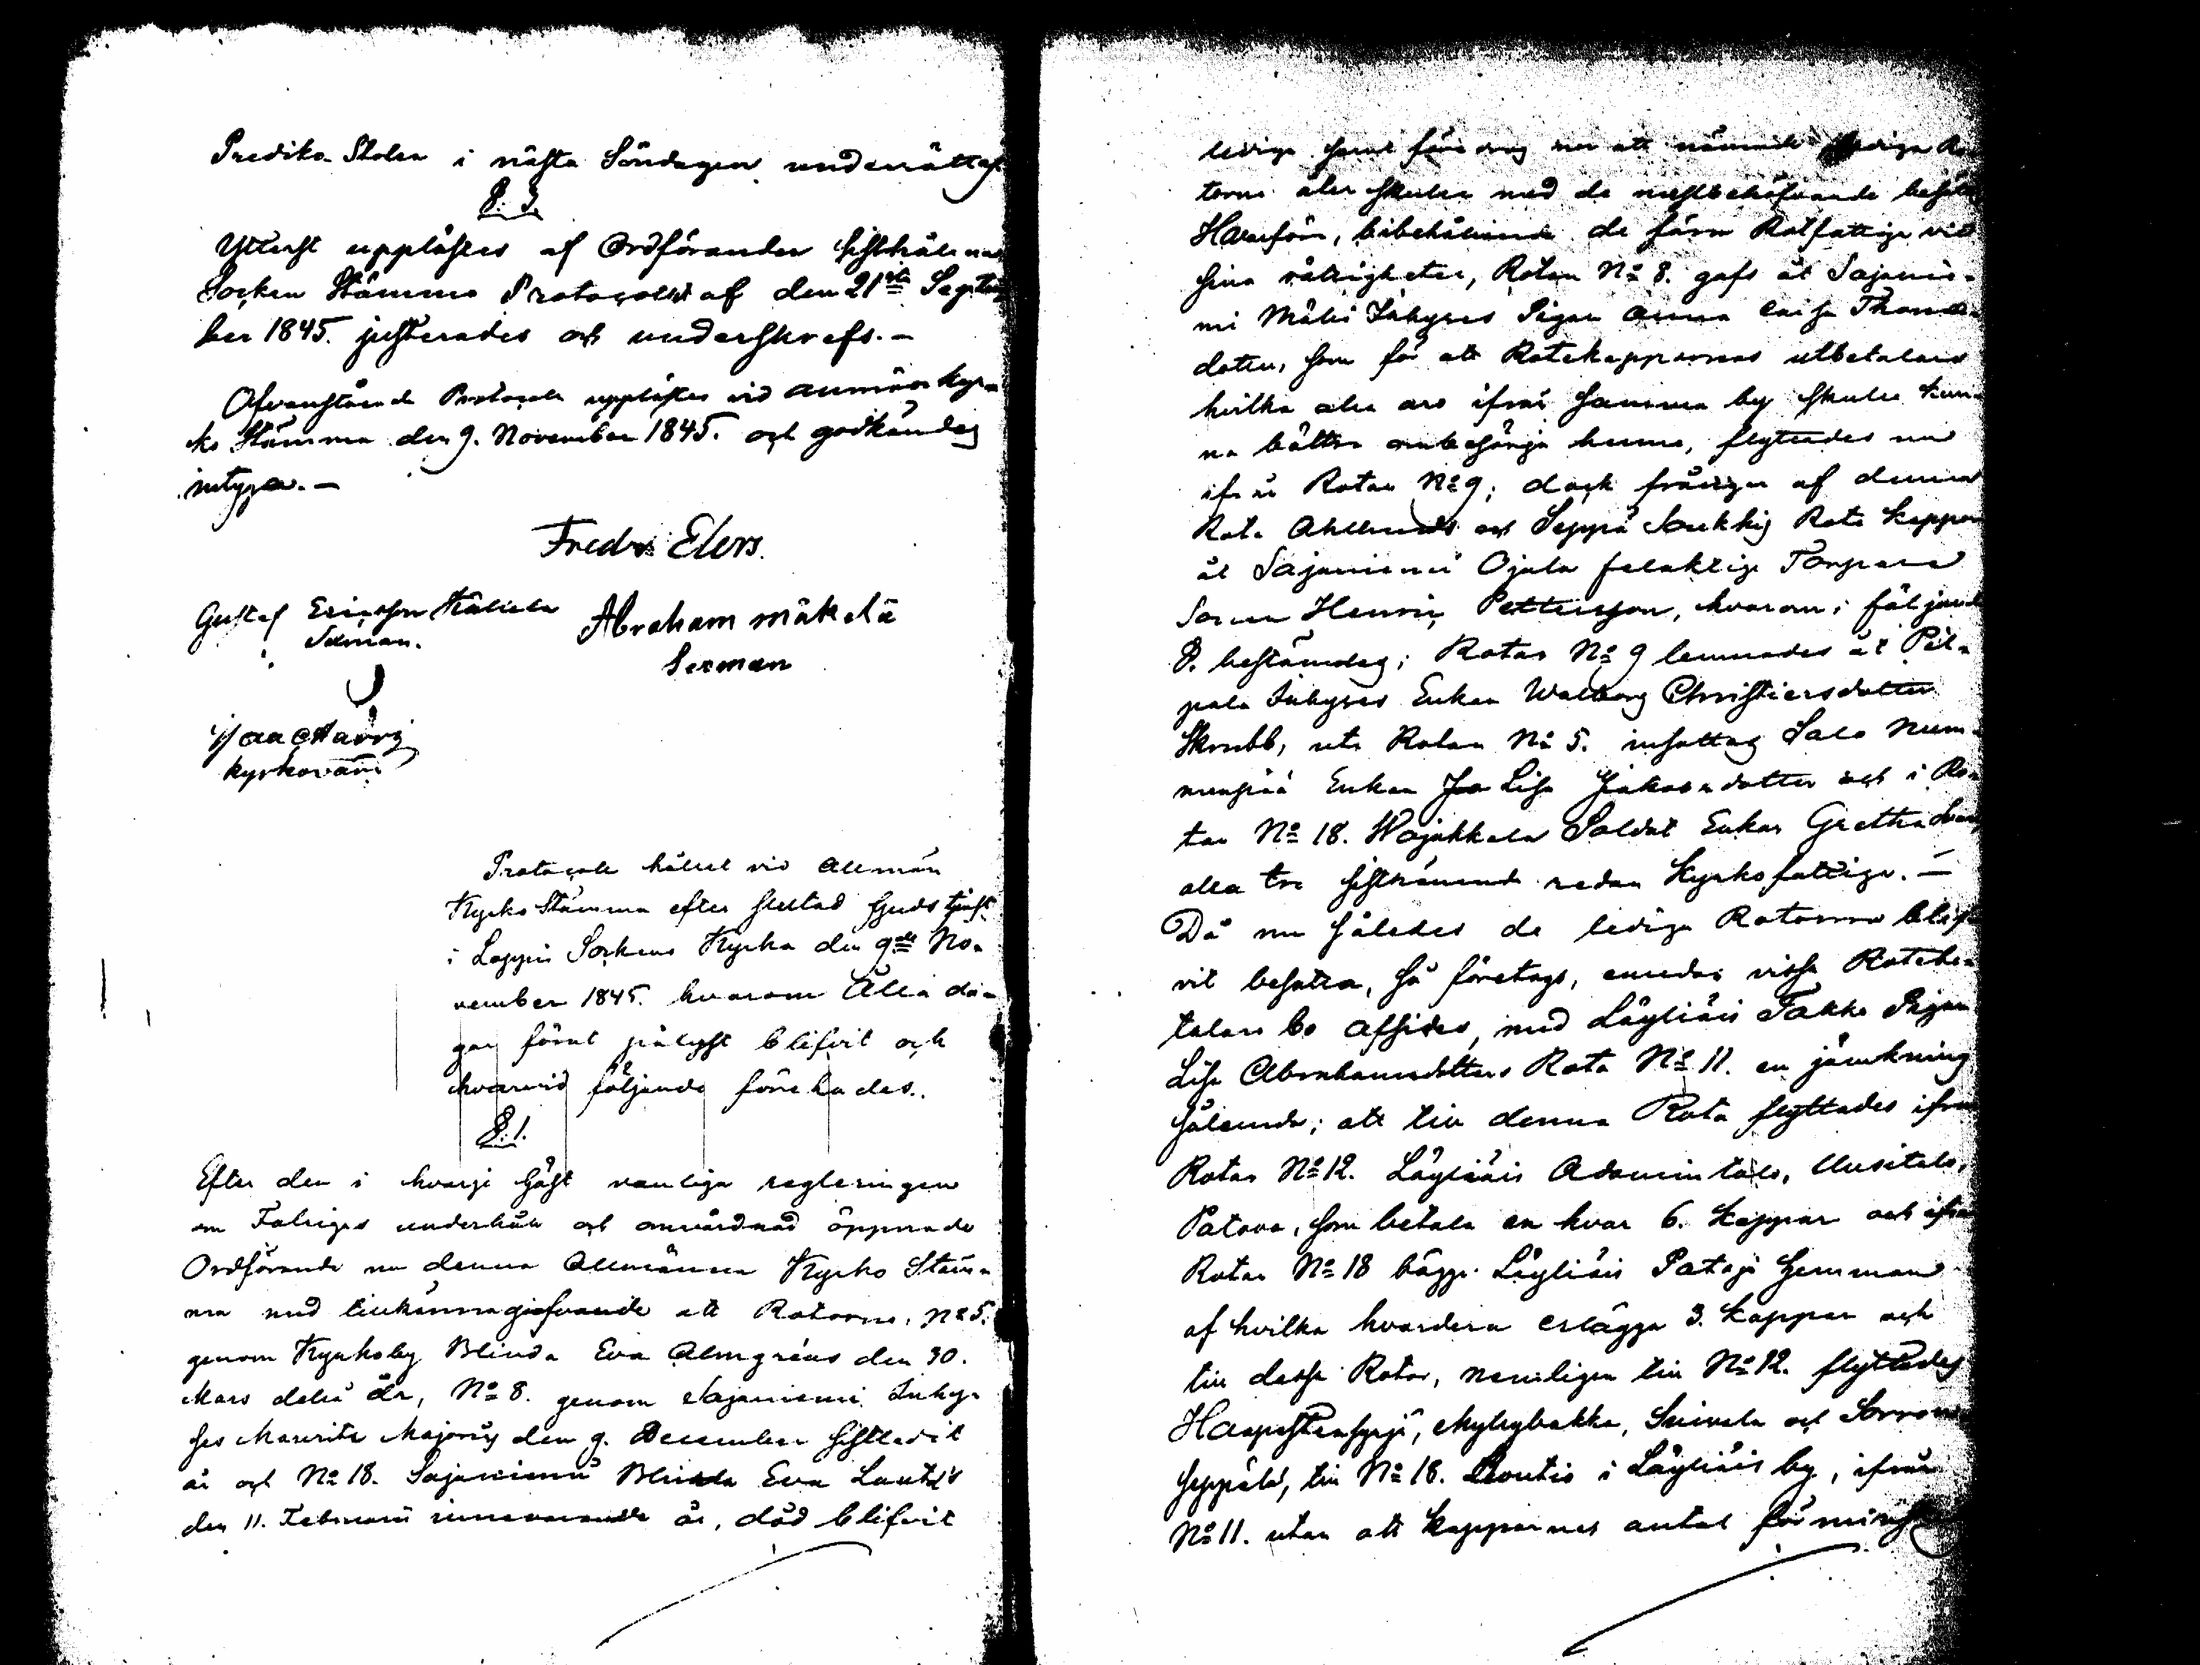 Prediko Stolen i nästa Söndagen underrättas
§. 3.
Ytterst upplästes af Ordföranden sisthållne
Socken Stämmo Protocollet af den 21sta Septem
ber 1845. justerades och underskrefs.-
Ofvanstående Protocoll upplästes vid allmän kyr-
ko Stämma den 9. November 1845. och godkändes
intyga.-
Fredr. Elers.
Gustaf Ericsson
Sexman.
Abraham mäkelä
Sexman
kyrkovärd
Protocoll hållet vid Allmän
Kyrko Stämma efter slutad Gudstjenst
i Loppis Sockens Kyrka den 9de No-
vember 1845. hvarom Åtta da-
gar förut pålyst blifvit och
hvarvid följande förehades.
§. 1.
Efter den i hvarje höst vanliga regleringen
om Fattiges underhåll och omvårdnad öppnade
Ordförande nu denna Allmänna Kyrko Stäm-
ma med tillkännagifvande att Rotorne, No 5.
genom Kyrkoby Blinda Eva Almgréns den 30.
Mars detta år, No 8. genom Sajaniemi Inhy-
ses den 9. December sistledit
år och No 18. Sajaniemi Blinda Eva
den 11. Februarii innevarande år, död blifvit
lediga samt nu att nämnde lediga Ro
torne åter skulle med de mestbehöfvande besättas
Härefter, bibehållande de förra Rotfattige vid
sina rättigheter, Rotan No 8. gafs åt Sajanie-
mi Inhyses Pigan Anna Caisa
dotter, som för att Rotekapparnas utbetalare
hvilka alla äro ifrån samma by skulle kun-
na bättre ombesörja henne, flyttades nu
ifrån Rotan No 9; dock af denna
Rota och Seppä Rote kappar
åt Sajaniemi Ojala Torpare
Sonen Henric Pettersson, hvarom i följande
§. bestämdes; Rotan No 9 lemnades åt Pil-
pala Inhyses Enkan Walborg Christiersdotter
Skrubb, uti Rotan No 5. insattes Salo Num-
menpää Enkan Lisa dotter och i Ro-
tan No 18. Wojakkala Soldat Enkan Gretha
alla tre sistnämnde redan Kyrkofattige.-
Då nu således de lediga Rotorna blif
vit besatta, så företogs, emedan vissa Rotebe-
talare bo afsides, med Läyliäis Takko Pigan
Lisa Abrahamsdotters Rota No 11. en jämkning
sålunda; att till denna Rota flyttades ifrån
Rotan No 12. Läyliäis Adamintalo, Uusitalo,
Patova, som betala en hvar 6. kappar och ifrån
Rotan No 18 bägge Läyliäis Hemman
af hvilka hvardera erlägga 3. kappar och
till dessa Rotor, nemligen till No 12. flyttades
Haapastensyrjä, Myllybakka, och
Seppälä, till No 18. i Läyliäis by, ifrån
No 11. utan att kapparnes antal